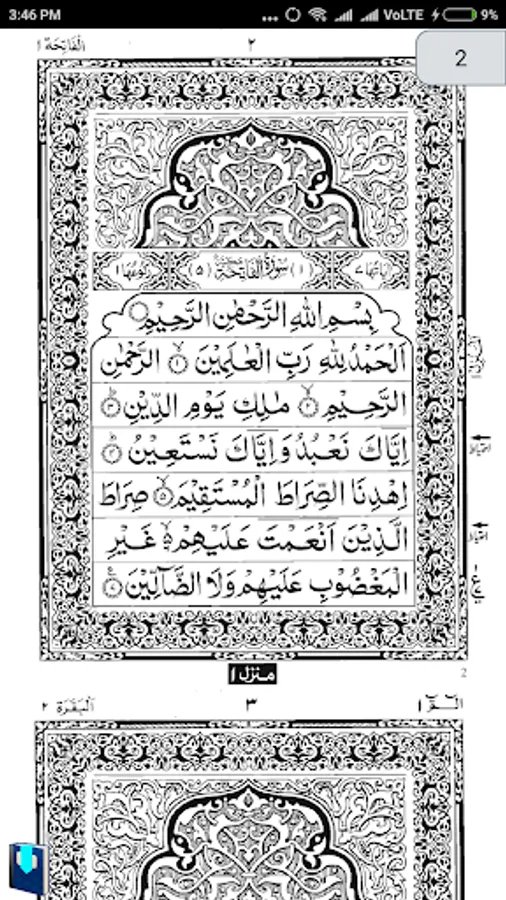 3:46 PM ... VoLTE 9%
الفَاتِحَة ١
٢
2
اٰيَاتُهَا ٧
(١) سُوْرَةُ الْفَاتِحَةِ (٥)
رُكُوْعُهَا ١
بِسْمِ اللّٰهِ الرَّحْمٰنِ الرَّحِيْمِ
اَلْحَمْدُ لِلّٰهِ رَبِّ الْعٰلَمِيْنَ ۙ﴿١﴾ الرَّحْمٰنِ
الرَّحِيْمِ ۙ﴿٢﴾ مٰلِكِ يَوْمِ الدِّيْنِ ؕ﴿٣﴾
اِيَّاكَ نَعْبُدُ وَاِيَّاكَ نَسْتَعِيْنُ ؕ﴿٤﴾
اِهْدِنَا الصِّرَاطَ الْمُسْتَقِيْمَ ۙ﴿٥﴾ صِرَاطَ
الَّذِيْنَ اَنْعَمْتَ عَلَيْهِمْ ۙ۬ غَيْرِ
الْمَغْضُوْبِ عَلَيْهِمْ وَلَا الضَّآلِّيْنَ
منزل ١
2
الٓـمّٓ ١
٣
اَلْبَقَرَة ٢